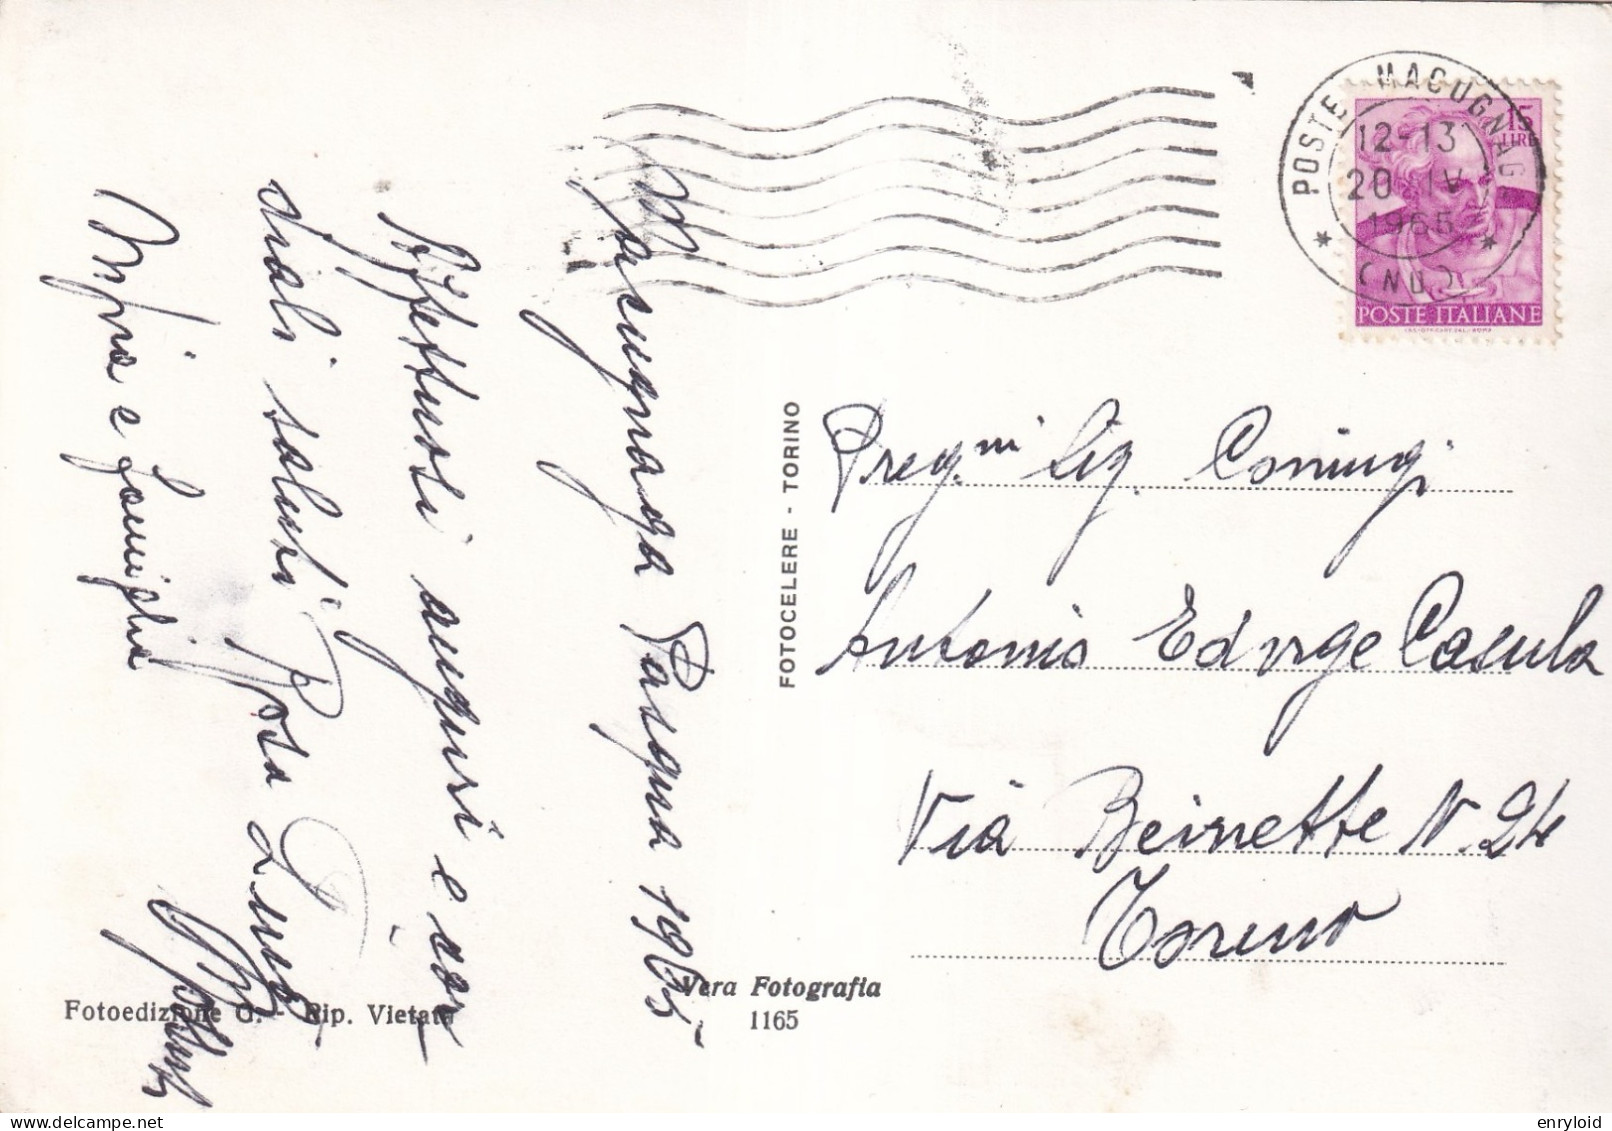 Macugnaga Pasqua 1965
Affettuosi auguri e cor
diali saluti Rosa Lino
e famiglia
FOTOCELERE - TORINO
Vera Fotografia
1165
Fotoedizione G. - Rip. Vietata
POSTE MACUGNAGA
12-13
20 IV
1965
(NO)
15
LIRE
POSTE ITALIANE
Preg.mi Sig. Coniugi
Antonio Edvige Casula
Via Beinette N. 24
Torino
enryloid